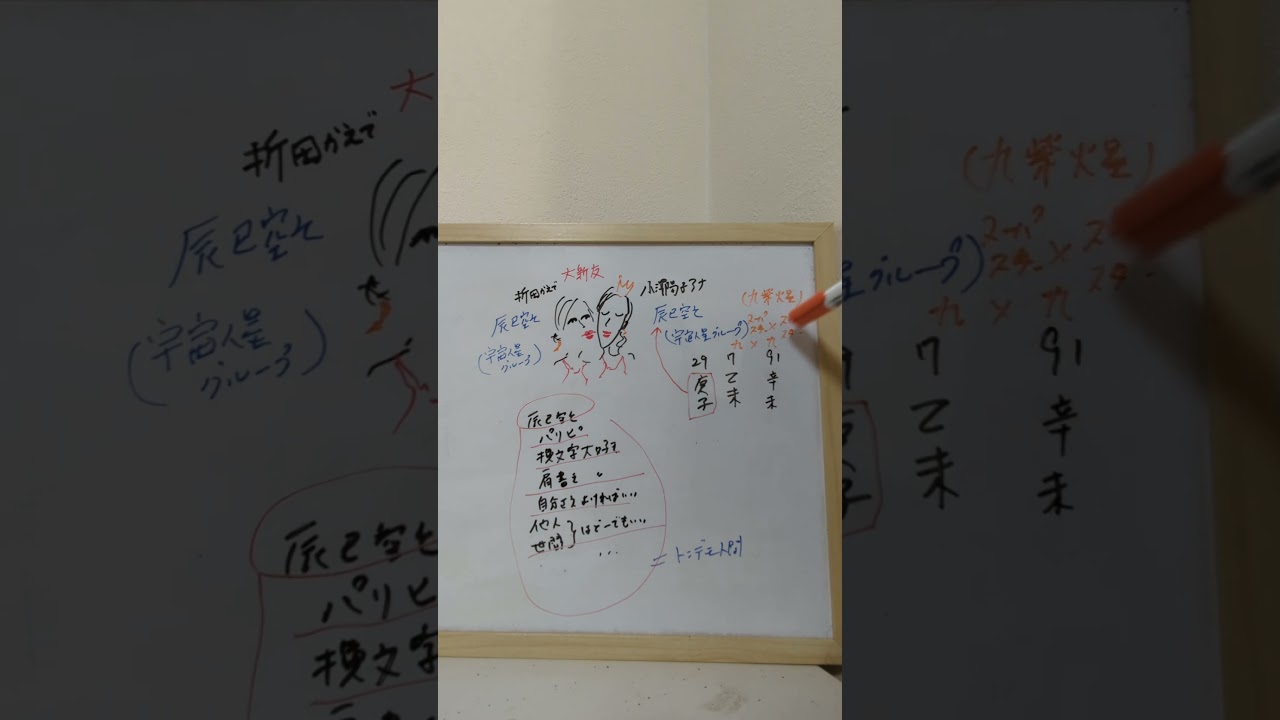 大親友
折田かえで
辰巳空亡
(宇宙人星
グループ)
辰巳空亡
(宇宙人星グループ)
(九紫火星)
スーパー
スター×ス
スター
九×九
29 7 91
庚 乙 辛
子 未 未
辰巳空亡
パリピ
横文字大好き
肩書き 〃
自分さえよければいい
他人
世間 } はどーでもいい
...
=トンデモ人間